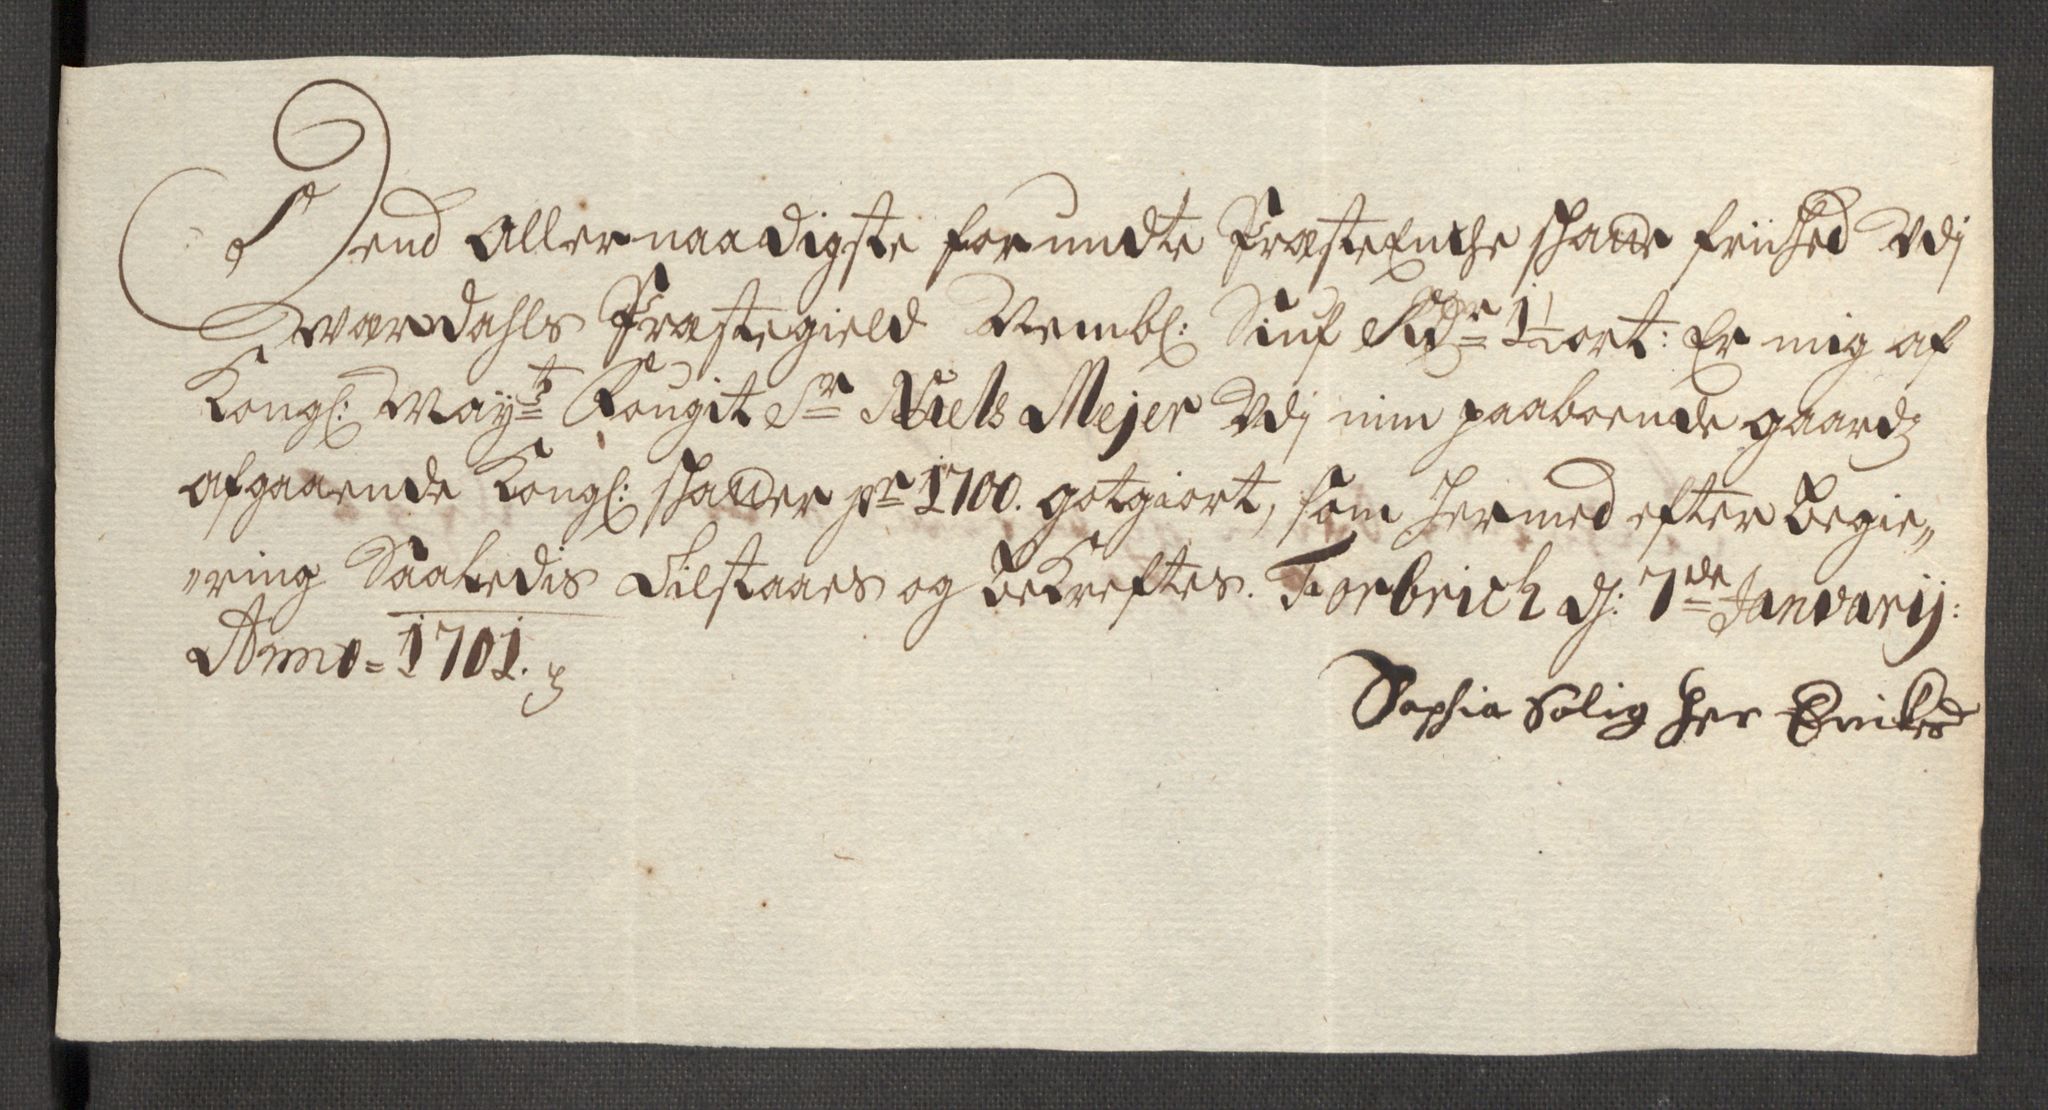 Dend Allernaadigste forundte Præsteenche schatte friihed Udj
Wærdahls Præstegield Nembl: Siuf Rdr 1½ ort: Er mig af
Kongl: Mayts Fougit Sr Niels Mejer Udj min paaboende gaards
afgaaende Kongl: schatter pr 1700. gotgiort, som hermed efter begie„
„ring Saaledis Tilstaaes og bekreftes. Forbrich dj: 7de Janvarij:
Anno = 1701.
Sophia Salig her Erikes